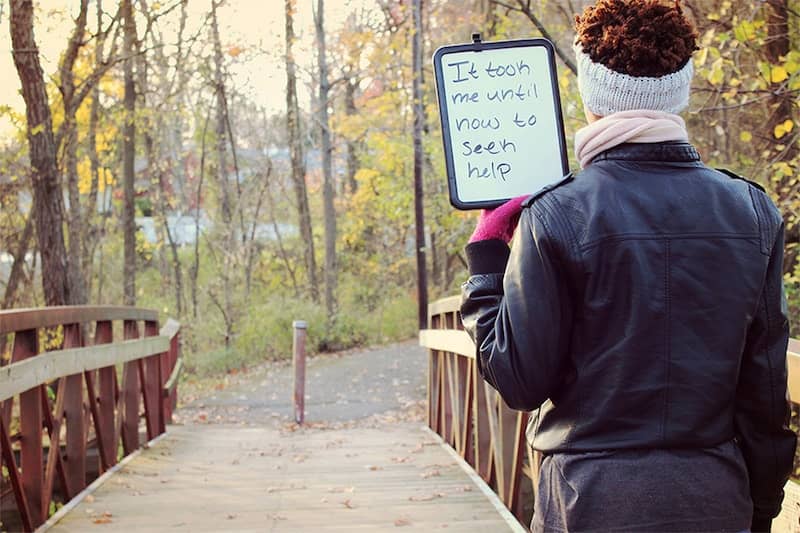 It took
me until
now to
seek
help